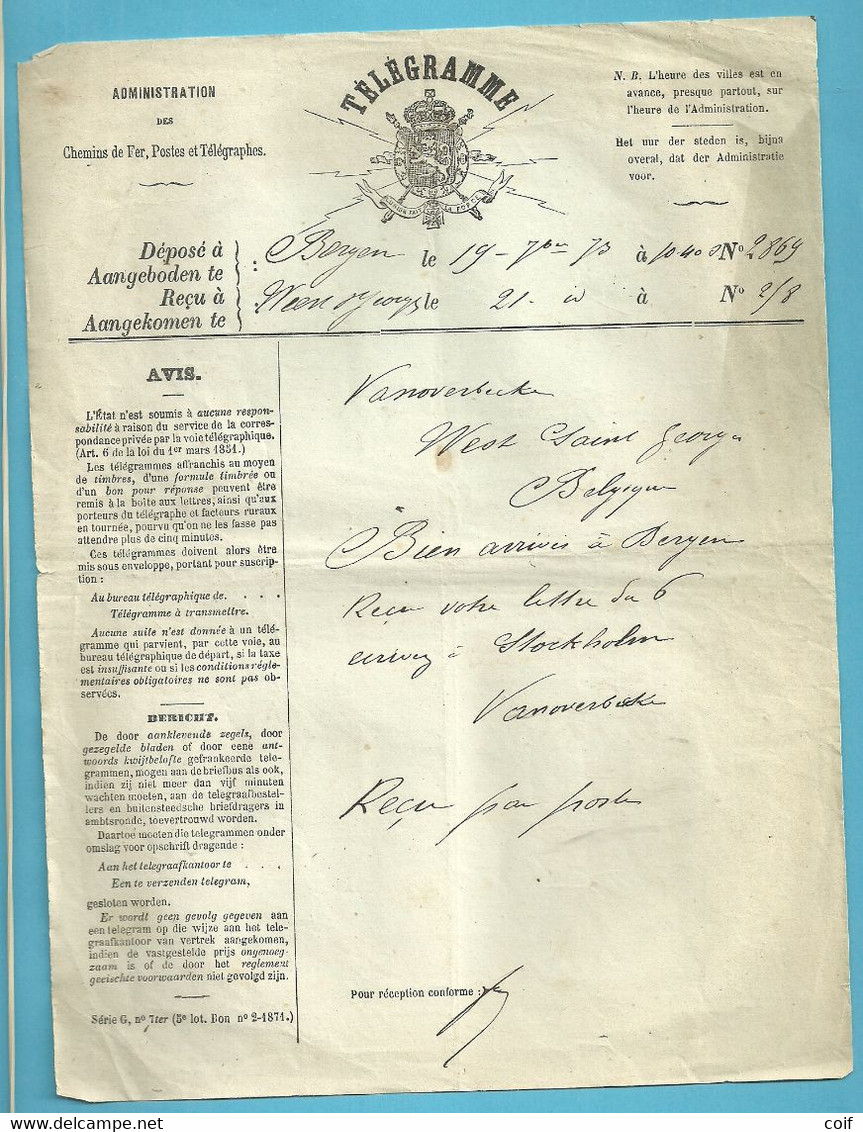 ADMINISTRATION
DES
Chemins de Fer, Postes et Télégraphes.
TÉLÉGRAMME
L'UNION FAIT LA FORCE
N. B. L'heure des villes est en
avance, presque partout, sur
l'heure de l'Administration.
Het uur der steden is, bijna
overal, dat der Administratie
voor.
Déposé à
Aangeboden te : Bergen le 19 - 7bre 73 à 10-40 s No 2869
Reçu à
Aangekomen te West St Georges le 21 - id à No 2/8
AVIS.
L'État n'est soumis à aucune respon-
sabilité à raison du service de la corres-
pondance privée par la voie télégraphique.
(Art. 6 de la loi du 1er mars 1851.)
Les télégrammes affranchis au moyen
de timbres, d'une formule timbrée ou
d'un bon pour réponse peuvent être
remis à la boîte aux lettres, ainsi qu'aux
porteurs du télégraphe et facteurs ruraux
en tournée, pourvu qu'on ne les fasse pas
attendre plus de cinq minutes.
Ces télégrammes doivent alors être
mis sous enveloppe, portant pour suscrip-
tion :
Au bureau télégraphique de. . . .
Télégramme à transmettre.
Aucune suite n'est donnée à un télé-
gramme qui parvient, par cette voie, au
bureau télégraphique de départ, si la taxe
est insuffisante ou si les conditions régle-
mentaires obligatoires ne sont pas ob-
servées.
BERICHT.
De door aanklevende zegels, door
gezegelde bladen of door eene ant-
woords kwijtbelofte gefrankeerde tele-
grammen, mogen aan de briefbus als ook,
indien zij niet meer dan vijf minuten
wachten moeten, aan de telegraafbestel-
lers en buitensteedsche briefdragers in
ambtsronde, toevertrouwd worden.
Daartoe moeten die telegrammen onder
omslag voor opschrift dragende :
Aan het telegraafkantoor te . . . .
Een te verzenden telegram,
gesloten worden.
Er wordt geen gevolg gegeven aan
een telegram op die wijze aan het tele-
graafkantoor van vertrek aangekomen,
indien de vastgestelde prijs ongenoeg-
zaam is of de door het reglement
geëischte voorwaarden niet gevolgd zijn.
Série G, no 7ter (5e lot. Bon no 2-1871.)
Vanoverbeeke
West Saint Georges
Belgique
Bien arrivés à Bergen
Reçu votre lettre du 6
écrivez à Stockholm
Vanoverbeeke
Reçu par poste
Pour réception conforme :
coif